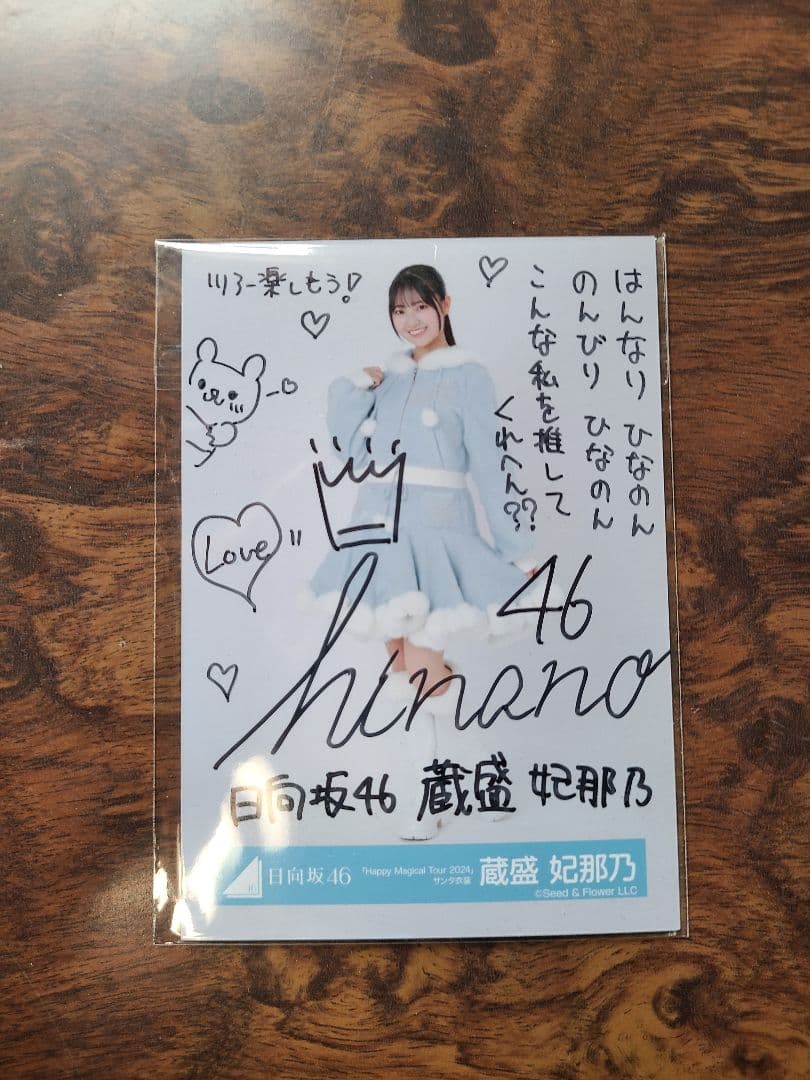 ツアー楽しもう!
はんなり ひなのん
のんびり ひなのん
こんな私を推して
くれへん??
Love
46
hinano
日向坂46 蔵盛 妃那乃
46
日向坂46 「Happy Magical Tour 2024」
サンタ衣装
蔵盛 妃那乃
©Seed & Flower LLC